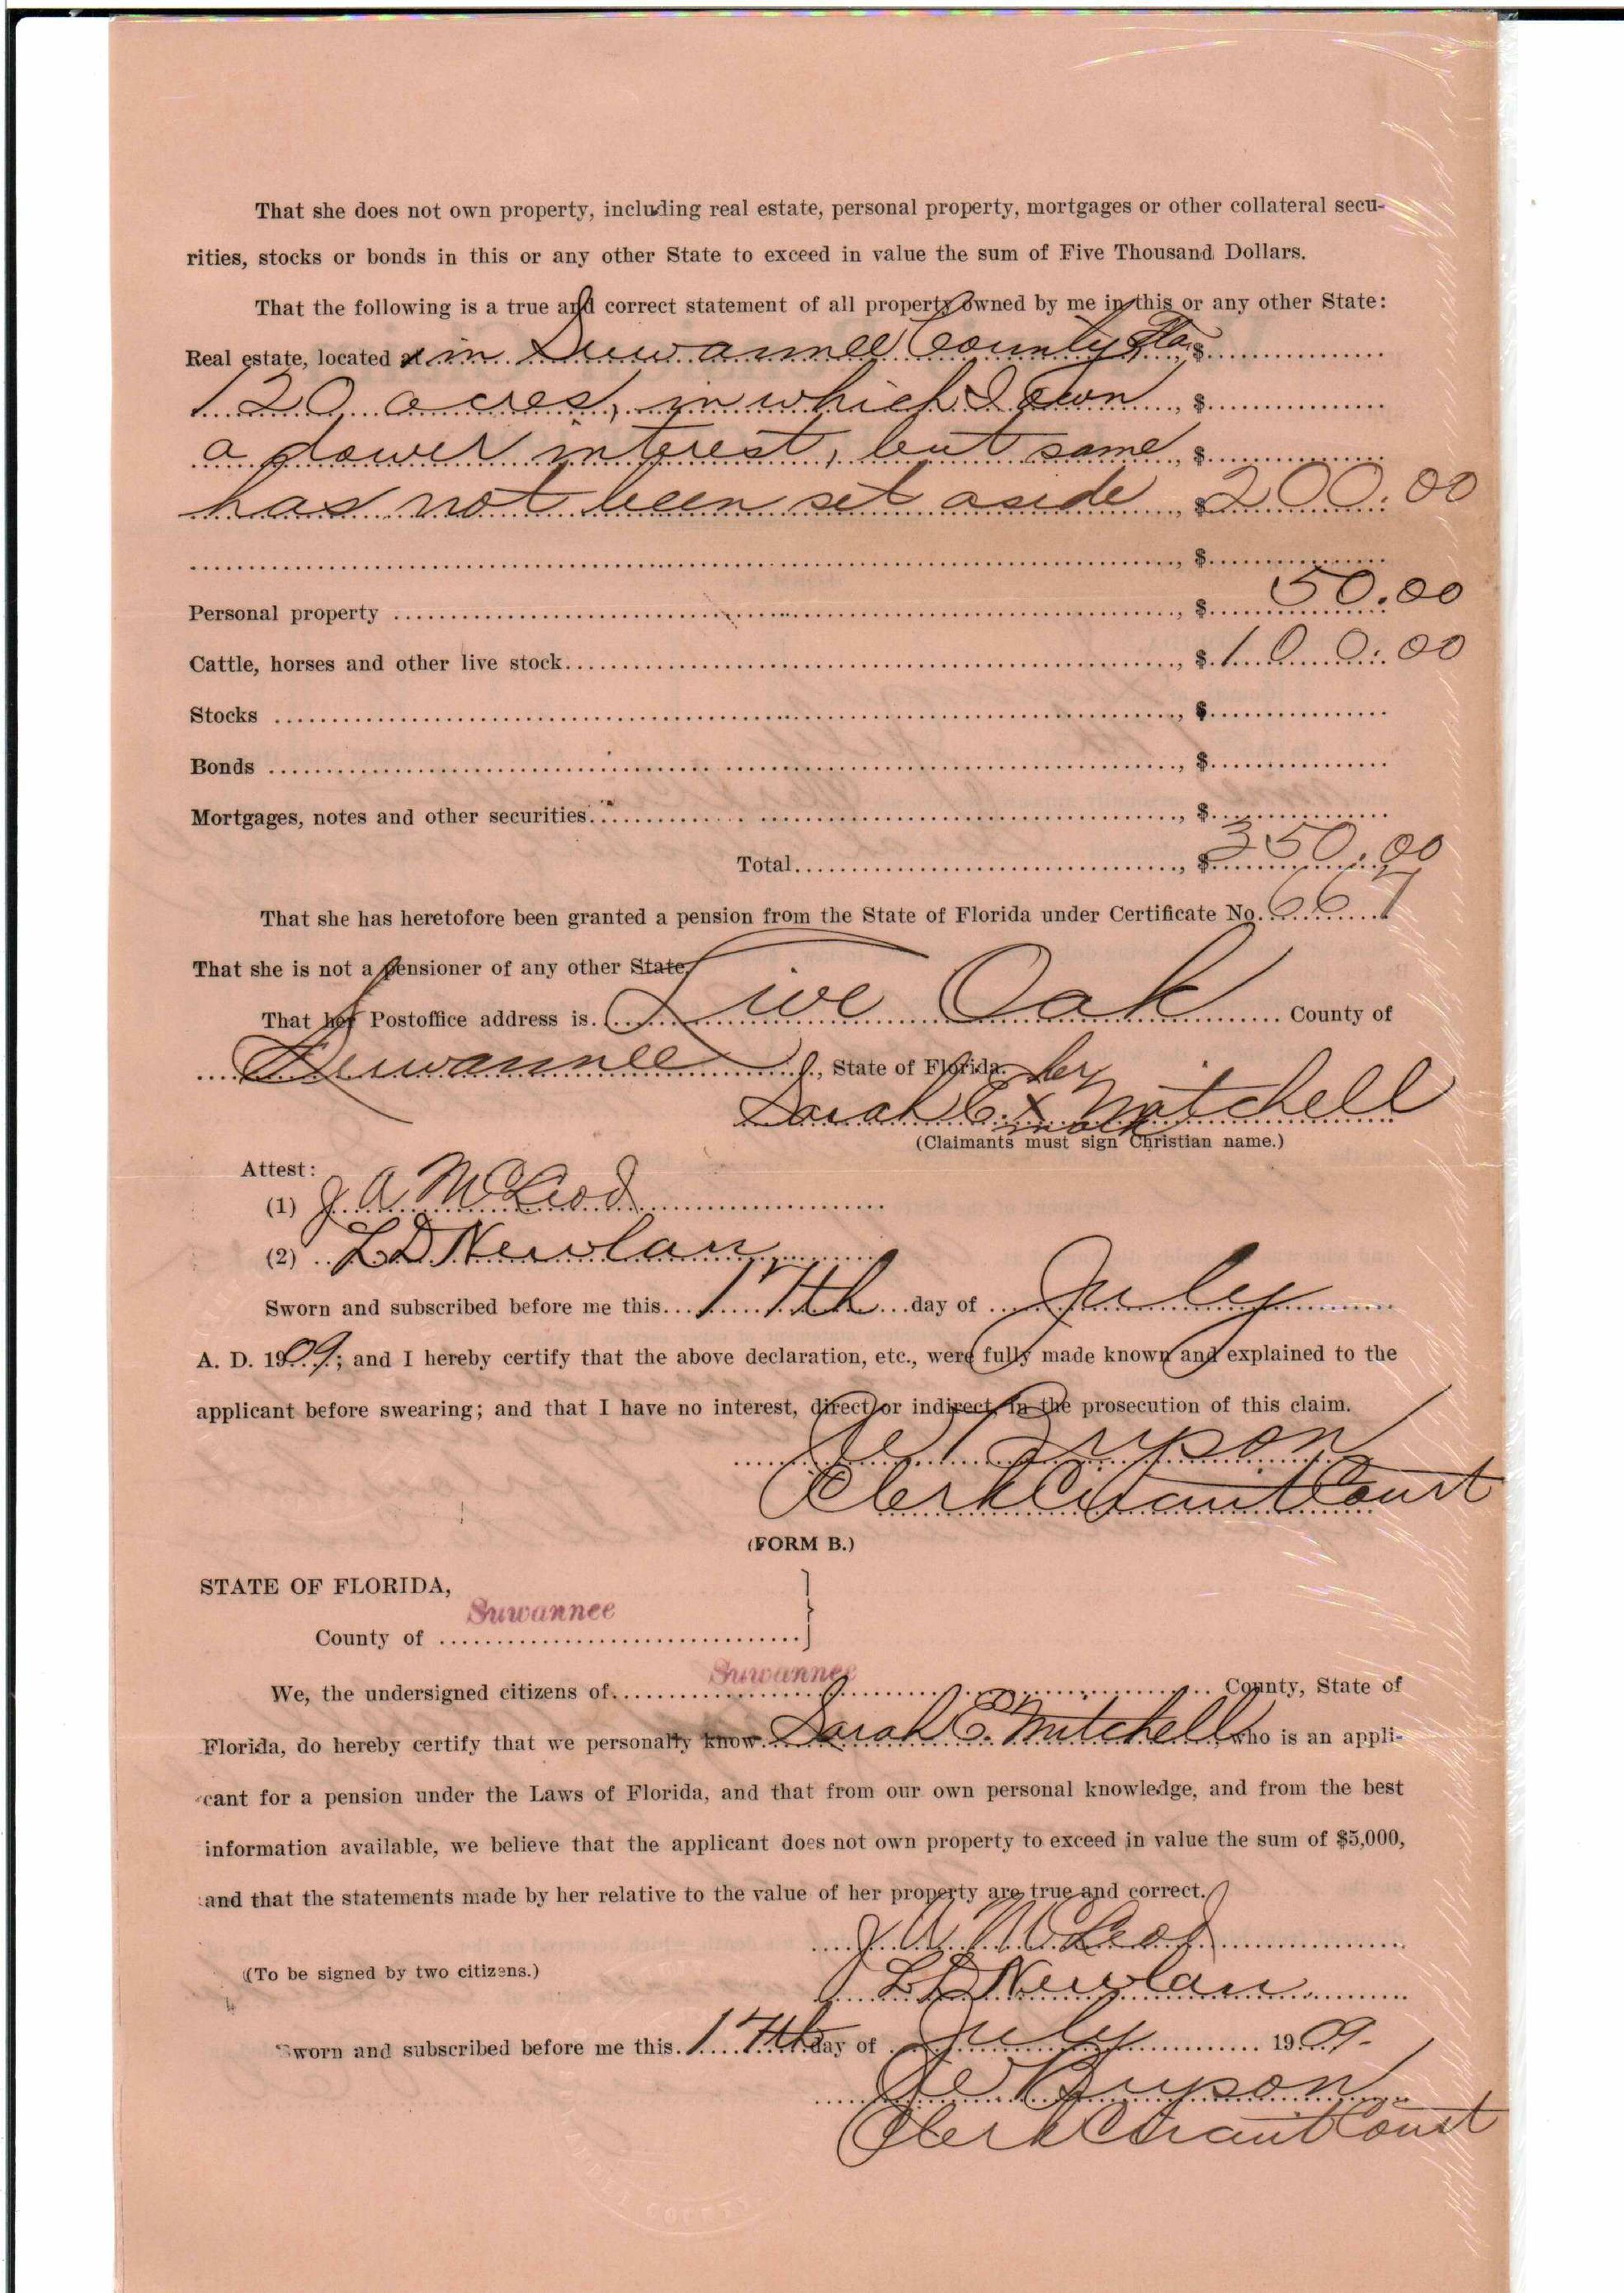 That she does not own property, including real estate, personal property, mortgages or other collateral secu-
rities, stocks or bonds in this or any other State to exceed in value the sum of Five Thousand Dollars.
That the following is a true and correct statement of all property owned by me in this or any other State:
Real estate, located in Suwannee County Fla, $
120 acres, in which I own, $
a dower interest, but same, $
has not been set aside, $200.00
, $
Personal property, $50.00
Cattle, horses and other live stock, $100.00
Stocks, $
Bonds, $
Mortgages, notes and other securities, $
Total, $350.00
That she has heretofore been granted a pension from the State of Florida under Certificate No. 667
That she is not a pensioner of any other State,
That her Postoffice address is. Live Oak County of
Suwannee, State of Florida.
her
Sarah E. x Mitchell
mark
(Claimants must sign Christian name.)
Attest:
(1) J. A. McLeod
(2) L D Newlan
Sworn and subscribed before me this 17th day of July
A. D. 1909; and I hereby certify that the above declaration, etc., were fully made known and explained to the
applicant before swearing; and that I have no interest, direct or indirect, in the prosecution of this claim.
Bryson
Clerk Circuit Court
(FORM B.)
STATE OF FLORIDA,
County of Suwannee
We, the undersigned citizens of Suwannee County, State of
Florida, do hereby certify that we personally know Sarah E. Mitchell who is an appli-
cant for a pension under the Laws of Florida, and that from our own personal knowledge, and from the best
information available, we believe that the applicant does not own property to exceed in value the sum of $5,000,
and that the statements made by her relative to the value of her property are true and correct.
J. A. McLeod
(To be signed by two citizens.)
L D Newlan
Sworn and subscribed before me this. 17th day of July 1909.
Bryson
Clerk Circuit Court